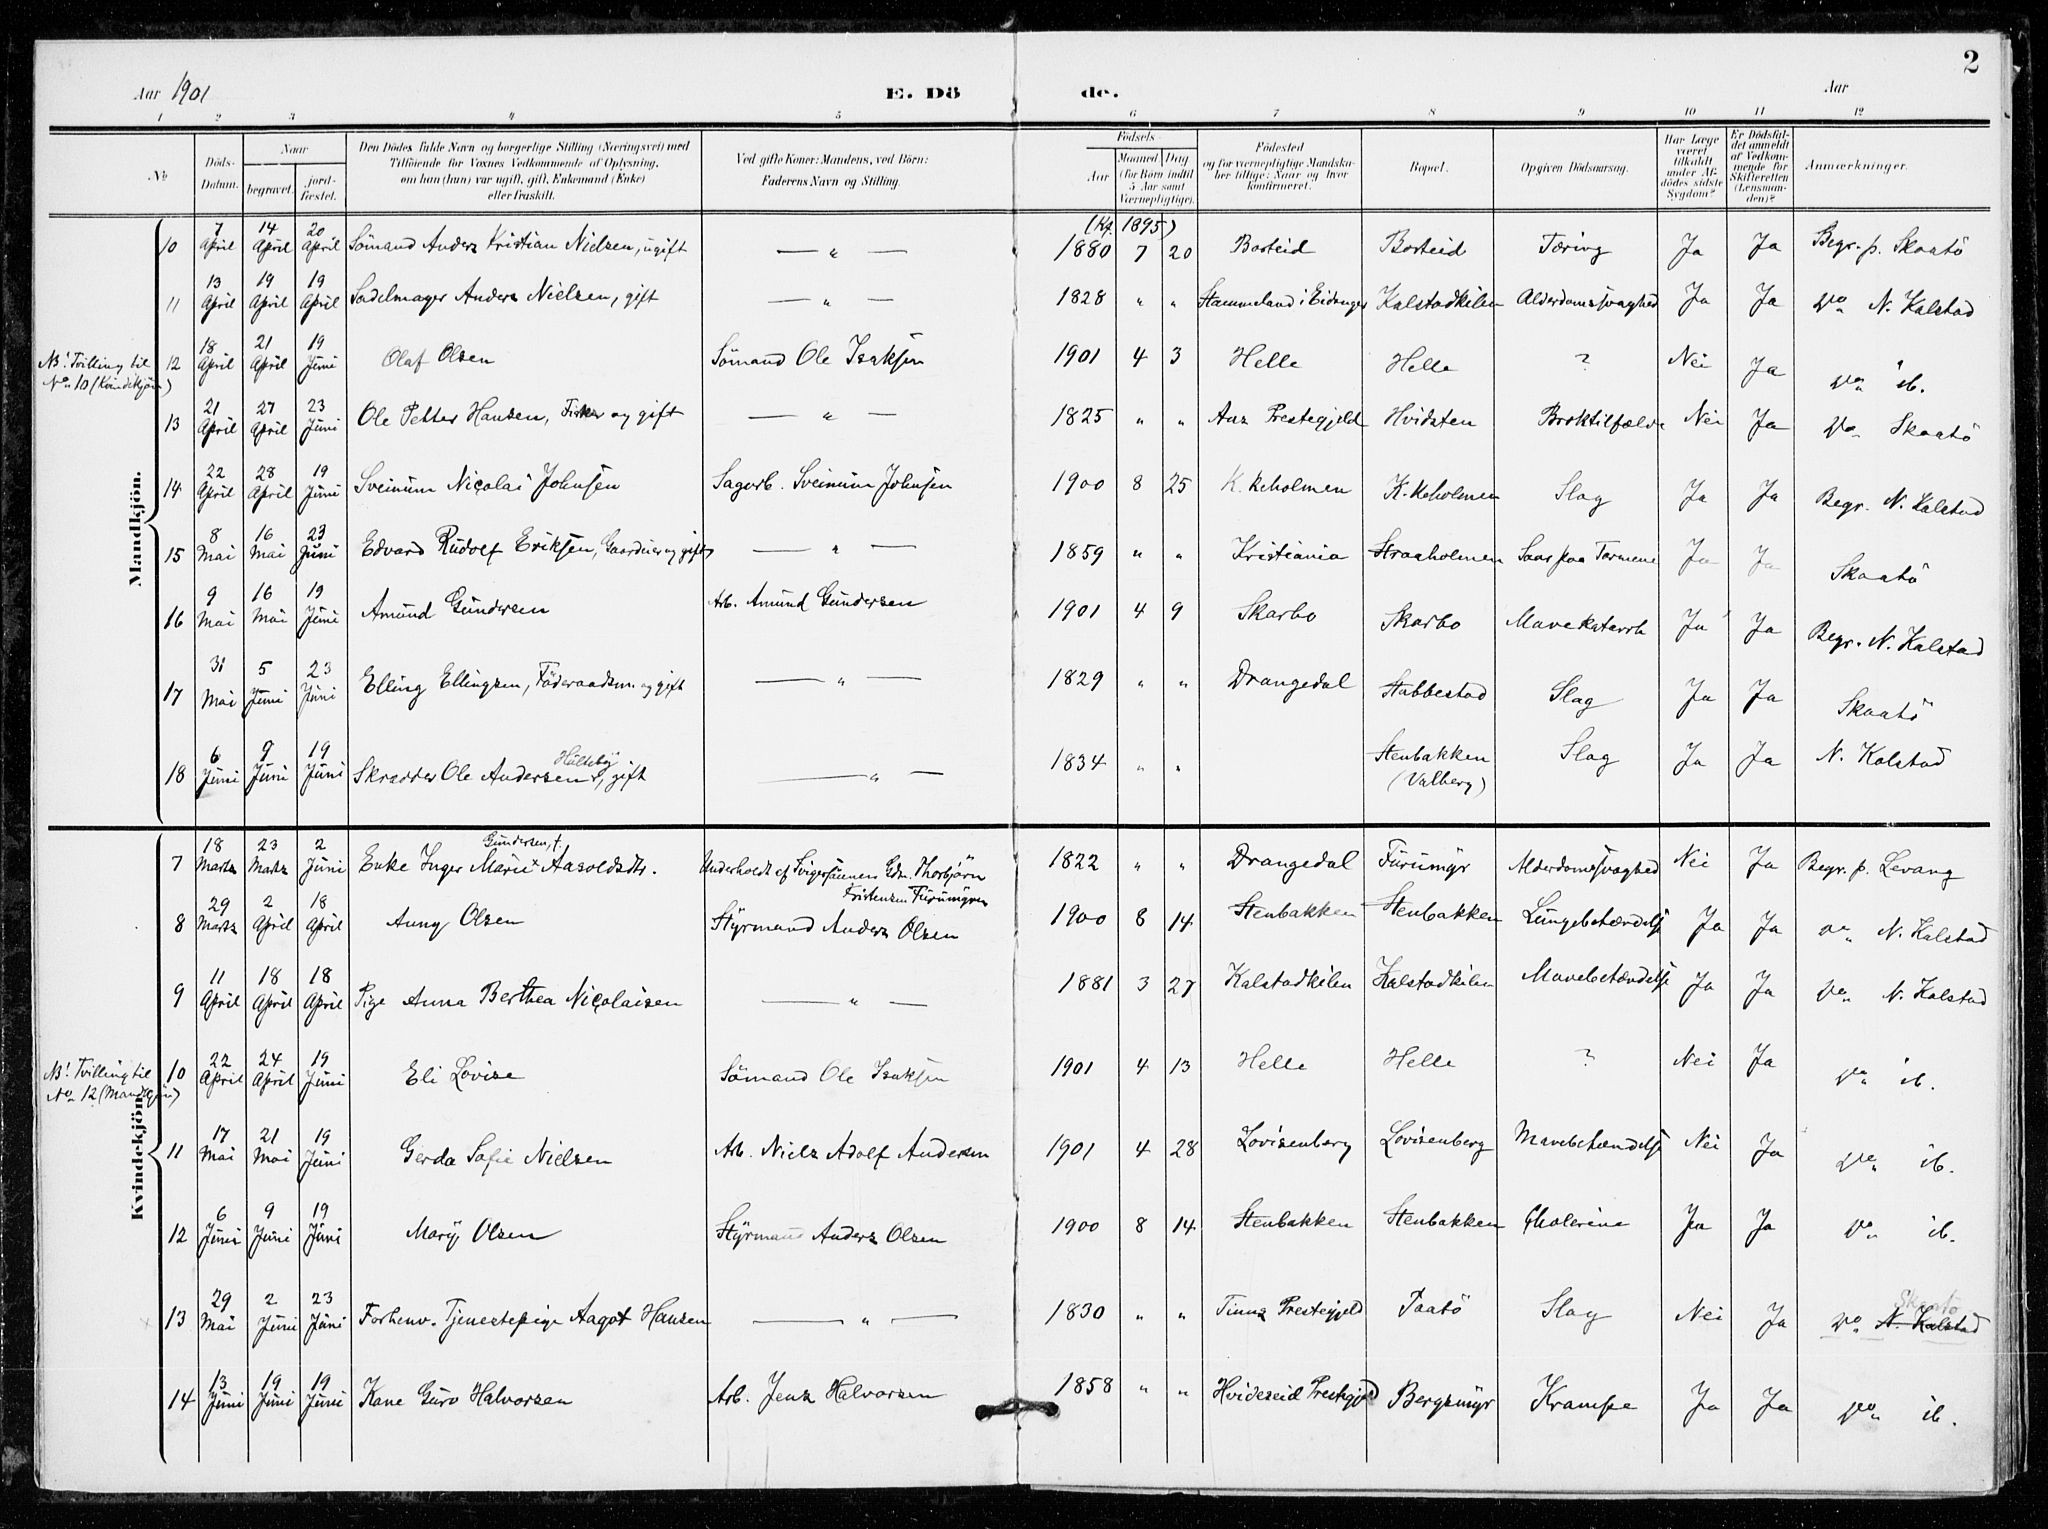 2
Aar 1901
E. Dö
de.
Aar
1 2 3 4 5 6 7 8 9 10 11 12
№
Döds-Datum.
Naar
begravet.
jord-fæstet.
Den Dödes fulde Navn og borgerlige Stilling (Næringsvei) med
Tilföiende for Voxnes Vedkommende af Oplysning,
om han (hun) var ugift, gift, Enkemand (Enke)
eller fraskilt.
Ved gifte Koner: Mandens, ved Börn:
Faderens Navn og Stilling.
Födsels-
Aar
Maaned Dag
(for Börn indtil
5 Aar samt
Værnepligtige).
Födested
og for værnepligtige Mandska-
ber tillige: Naar og hvor
konfirmeret.
Bopæl.
Opgiven Dödsaarsag.
Har Læge
været
tilkaldt
under Af-
dödes sidste
Sygdom?
Er Dödsfal-
det anmeldt
af Vedkom-
mende for
Skifteretten
(Lensman-
den)?
Anmærkninger.
Mandkjön.
(Kf. 1895)
10 7 April 14 April 20 April Sömand Anders Kristian Nielsen, ugift — " — 1880 7 20 Borteid Borteid Tæring Ja Ja Begr. p. Skaatö
11 13 April 19 April 19 April Sadelmager Anders Nielsen, gift — " — 1828 " " Stammeland i Eidanger Kalstadkilen Alderdomssvaghed Ja Ja do N. Kalstad
NB! Tvilling til
No 10 (Kvindekjön)
12 18 April 21 April 19 Juni Olaf Olsen Sömand Ole Isaksen 1901 4 3 Helle Helle ? Nei Ja do ib.
13 21 April 27 April 23 Juni Ole Petter Hansen, Fisker og gift — " — 1825 " " Aas Prestegjeld Hvidsten Broktilfælde Nei Ja do Skaatö
14 22 April 28 April 19 Juni Sveinum Nicolai Johnsen Sagarb. Sveinum Johnsen 1900 8 25 K.keholmen K.keholmen Slag Ja Ja Begr. N. Kalstad
15 8 Mai 16 Mai 23 Juni Edvard Rudolf Eriksen, Gaardeier og gift — " — 1859 " " Kristiania Straaholmen Saar paa Tarmene Ja Ja Skaatö
16 9 Mai 16 Mai 19 Juni Amund Gundersen Arb. Amund Gundersen 1901 4 9 Skarbo Skarbo Mavekatarrh Ja Ja Begr. N. Kalstad
17 31 Mai 5 Juni 23 Juni Elling Ellingsen, Föderaadsm. og gift — " — 1829 " " Drangedal Stabbestad Slag Ja Ja Skaatö
Hulteby
18 6 Juni 9 Juni 19 Juni Skrædder Ole Andersen, gift — " — 1834 " " Stenbakken (Valberg) Slag Ja Ja N. Kalstad
Kvindekjön.
Gundersen, +
7 18 Marts 23 Marts 2 Juni Enke Inger Marie + Aasoldsdtr. Underholdt af Svigersönnens Gdm. Thorbjörn Kristensen Furumyren 1822 " " Drangedal Furumyr Alderdomssvaghed Nei Ja Begr. p. Levang
8 29 Marts 2 April 18 April Anny Olsen Styrmand Anders Olsen 1900 8 14 Stenbakken Stenbakken Lungebetændelse Ja Ja do N. Kalstad
9 11 April 18 April 18 April Pige Anna Berthea Nicolaisen — " — 1881 3 27 Kalstadkilen Kalstadkilen Mavebetændelse Ja Ja do N. Kalstad
NB! Tvilling til
No 12 (Mandkjön)
10 22 April 24 April 19 Juni Eli Lovise Sömand Ole Isaksen 1901 4 13 Helle Helle ? Nei Ja do ib.
11 17 Mai 21 Mai 19 Juni Gerda Sofie Nielsen Arb. Niels Adolf Andersen 1901 4 28 Lovisenberg Lovisenberg Mavebetændelse Nei Ja do ib.
12 6 Juni 9 Juni 19 Juni Mary Olsen Styrmand Anders Olsen 1900 8 14 Stenbakken Stenbakken Cholerine Ja Ja do ib.
13 29 Mai 2 Juni 23 Juni Forhenv. Tjenestepige Aagot Hansen — " — 1830 " " Tinns Prestegjeld Taatö Slag Nei Ja do N. Kalstad Skaatö
14 13 Juni 19 Juni 19 Juni Kone Guro Halvorsen Arb. Jens Halvorsen 1858 " " Hvideseid Prestegjeld Bergsmyr Krampe Ja Ja do ib.